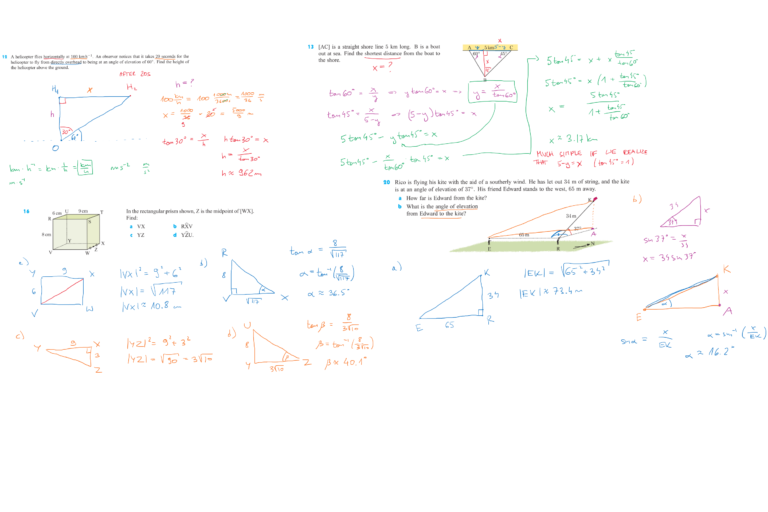 15 A helicopter flies horizontally at 100 kmh⁻¹. An observer notices that it takes 20 seconds for the
helicopter to fly from directly overhead to being at an angle of elevation of 60°. Find the height of
the helicopter above the ground.
AFTER 20s
H₁ x H₂
h
30° 60°
O
h = ?
tan30° = x/h
h tan30° = x
h = x/tan30°
h ≈ 962 m
13 [AC] is a straight shore line 5 km long. B is a boat
out at sea. Find the shortest distance from the boat to
the shore.
x = ?
x
A y 5 km 5-y C
B
tan60° = x/y
y = x/tan60°
tan45° = x/5-y
(5-y)tan45° = x
5 tan45° - y tan45° = x
5tan45° - x/tan60° tan45° = x
5tan45° = x + x tan45°/tan60°
5tan45° = x (1 + tan45°/tan60°)
x = 5tan45°/1 + tan45°/tan60°
x ≈ 3.17 km
MUCH SIMPLER IF WE REALISE
THAT 5-y = x (tan45° = 1)
16
In the rectangular prism shown, Z is the midpoint of [WX].
Find:
a VX b RX̂V
c YZ d YẐU.
6 cm U 9 cm T
R S
8 cm
Y X
Z
V W
a)
Y 9 X
6
V W
|VX|² = 9² + 6²
|VX| = √117
|VX| ≈ 10.8 m
b)
R
8
V √117 X
α
tan α = 8/√117
α = tan⁻¹ (8/√117)
α ≈ 36.5°
c)
Y 9 X
3
Z
|YZ|² = 9² + 3²
|YZ| = √90 = 3√10
d)
U
8
Y 3√10 Z
β
tan β = 8/3√10
β = tan⁻¹ (8/3√10)
β ≈ 40.1°
20 Rico is flying his kite with the aid of a southerly wind. He has let out 34 m of string, and the kite
is at an angle of elevation of 37°. His friend Edward stands to the west, 65 m away.
a How far is Edward from the kite?
b What is the angle of elevation
from Edward to the kite?
K
34 m
37°
65 m
A
E R N
a)
K
34
E 65 R
|EK| = √65² + 34²
|EK| ≈ 73.4 m
b)
34
x
37°
sin 37° = x/34
x = 34 sin37°
K
x
α
E A
sin α = x/EK
α = sin⁻¹ (x/EK)
α ≈ 16.2°